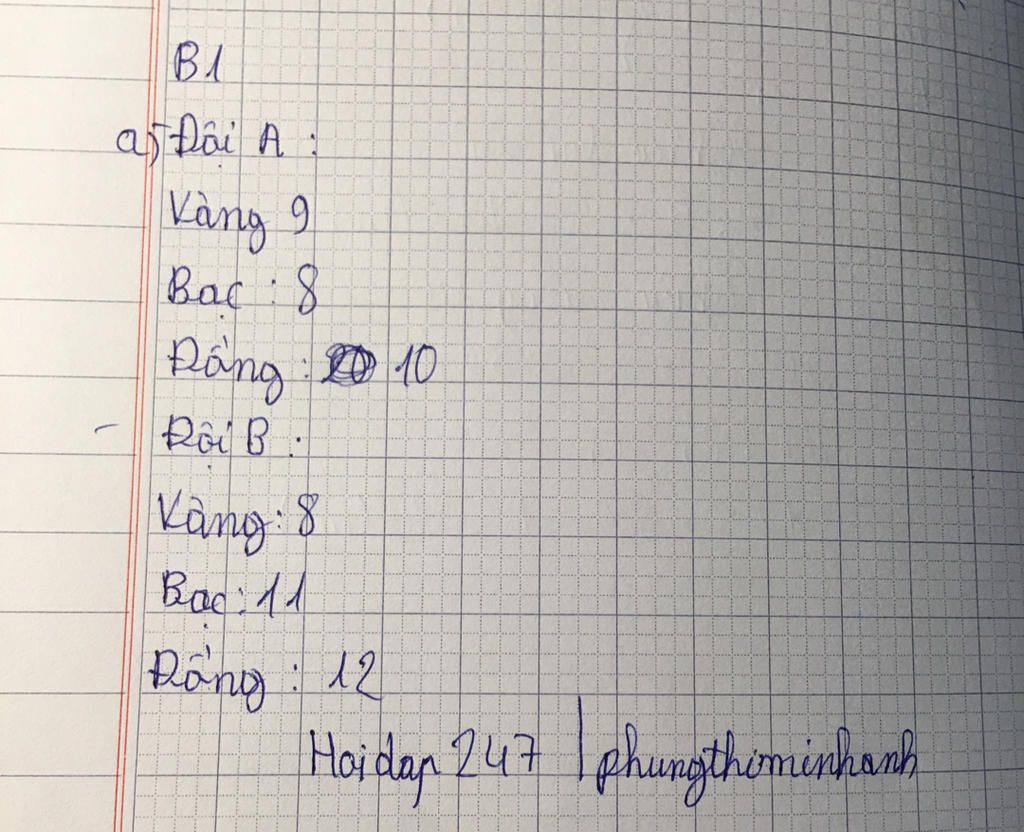 B1
a) Đội A :
Vàng 9
Bạc : 8
Đồng : 10
- Đội B :
Vàng : 8
Bạc : 11
Đồng : 12
Hoidap 247 | phungthiminhanh